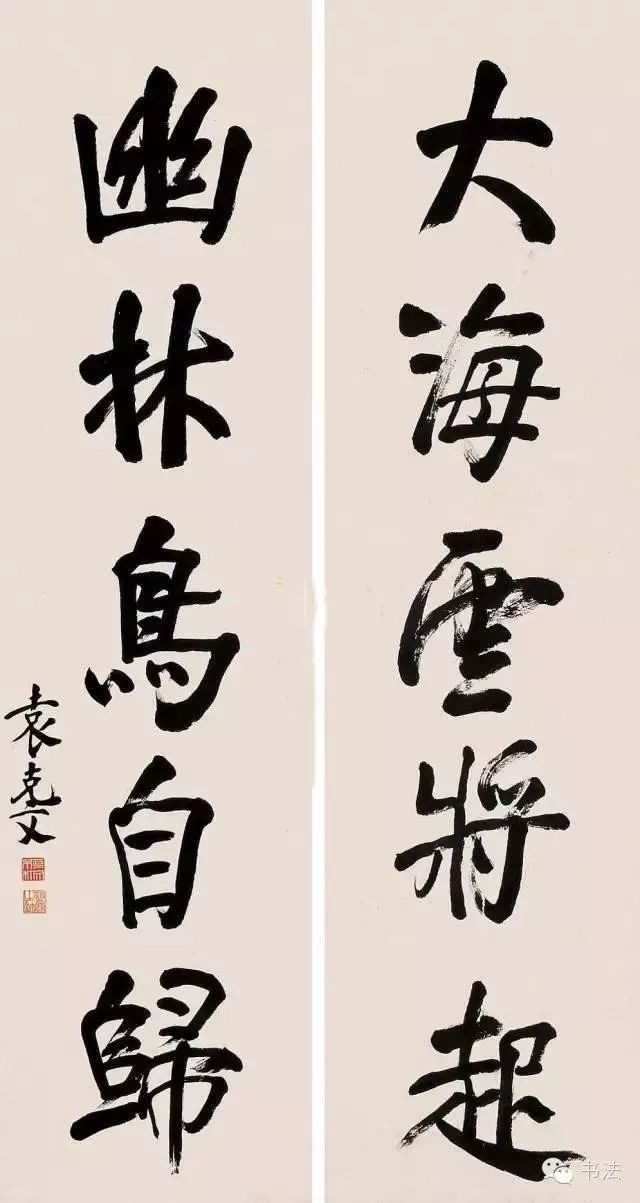 大海雲將起
幽林鳥自歸
袁克文
书法